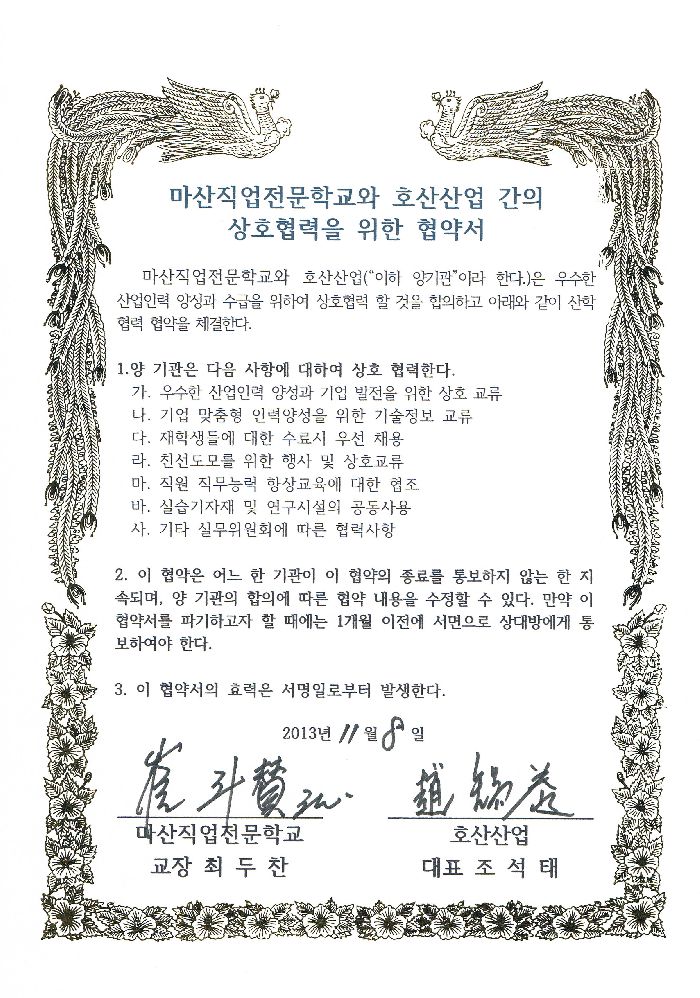 마산직업전문학교와 호산산업 간의
상호협력을 위한 협약서
마산직업전문학교와 호산산업("이하 양기관"이라 한다.)은 우수한
산업인력 양성과 수급을 위하여 상호협력 할 것을 합의하고 아래와 같이 산학
협력 협약을 체결한다.
1.양 기관은 다음 사항에 대하여 상호 협력한다.
가. 우수한 산업인력 양성과 기업 발전을 위한 상호 교류
나. 기업 맞춤형 인력양성을 위한 기술정보 교류
다. 재학생들에 대한 수료시 우선 채용
라. 친선도모를 위한 행사 및 상호교류
마. 직원 직무능력 향상교육에 대한 협조
바. 실습기자재 및 연구시설의 공동사용
사. 기타 실무위원회에 따른 협력사항
2. 이 협약은 어느 한 기관이 이 협약의 종료를 통보하지 않는 한 지
속되며, 양 기관의 합의에 따른 협약 내용을 수정할 수 있다. 만약 이
협약서를 파기하고자 할 때에는 1개월 이전에 서면으로 상대방에게 통
보하여야 한다.
3. 이 협약서의 효력은 서명일로부터 발생한다.
2013년 11 월 8 일
마산직업전문학교 호산산업
교장 최 두 찬 대표 조 석 태